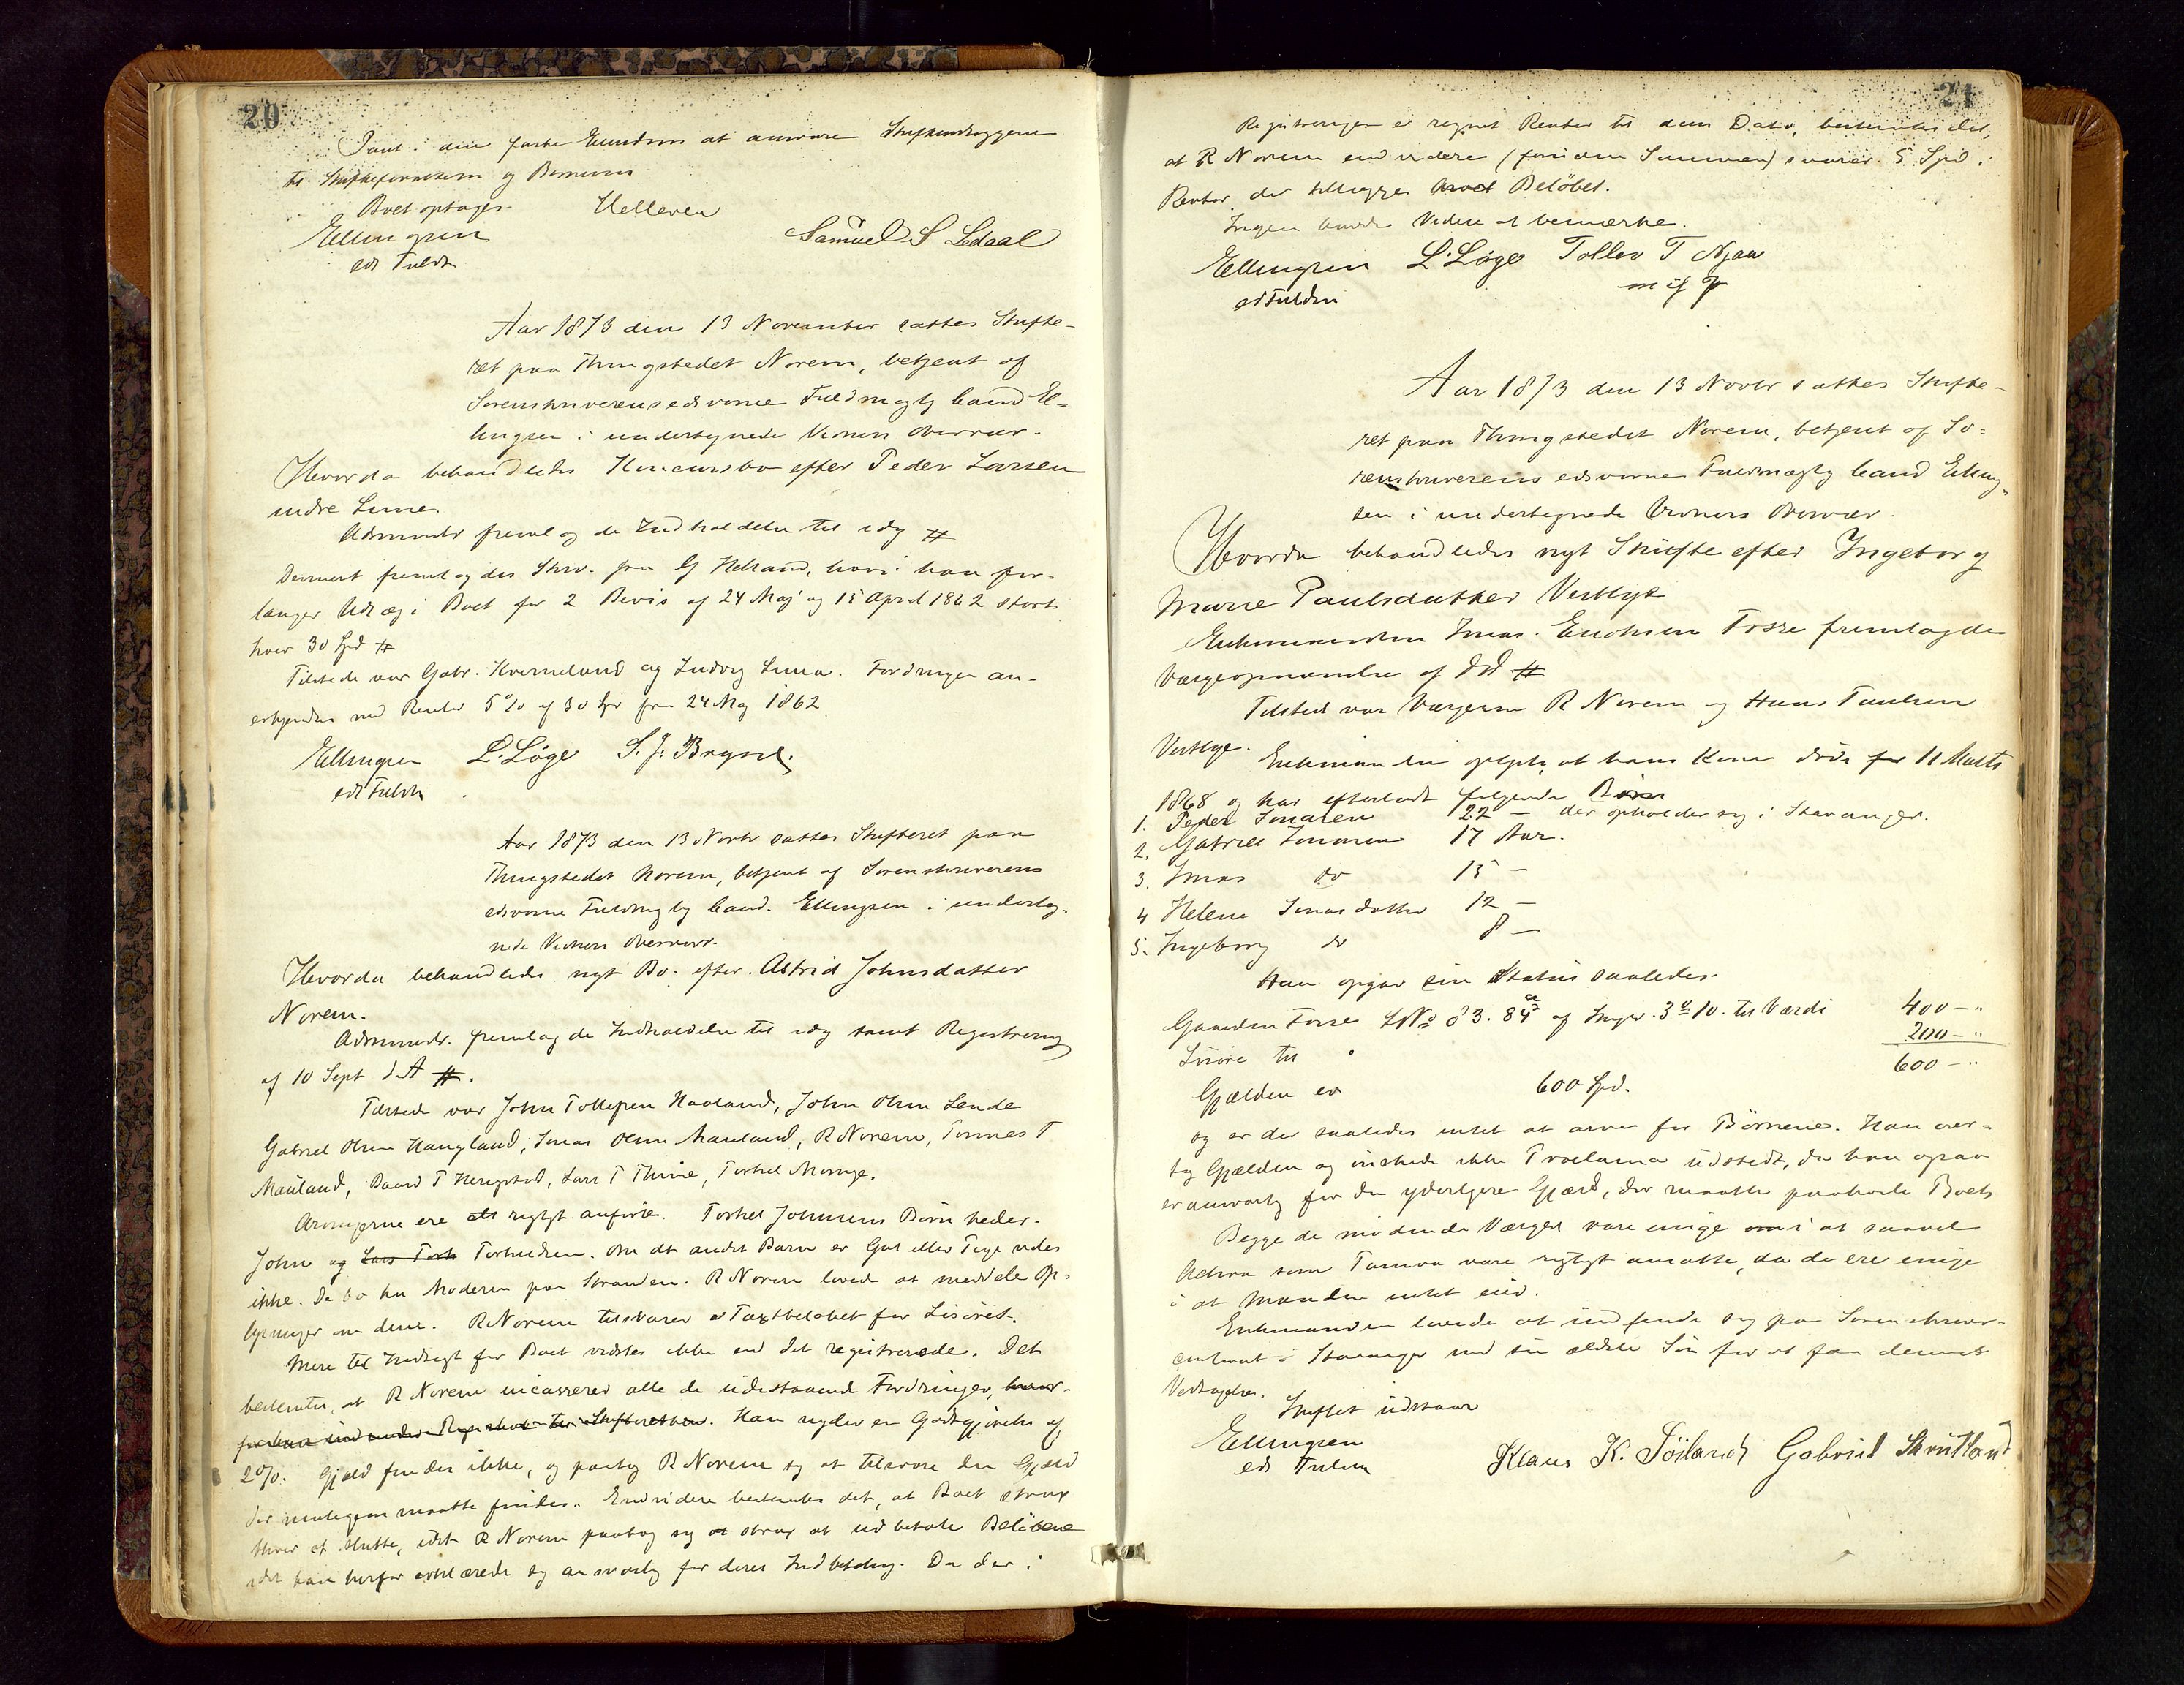 20
Pant i den faste Eiendom at ansvare Skifteudlæggene
til Skifteforvalteren og Børnene
Boet optages.
Helleren
Ellingsen
eds Fuldm
Samuel S Ledaal
Aar 1873 den 13 November sattes Skifte-
ret paa Thingstedet Norem, betjent af
Sorenskriverens edsvorne Fuldmægtig Cand El-
lingsen i undertegnede Vidners Overvær.
Hvorda behandledes Concursbo efter Peder Larsen
indre Lime.
Adminstr fremlagde Indkaldelse til idag #
Dernæst fremlagdes Skriv. fra G Helland, hvori han for-
langer Udlæg i Boet for 2 Bevis af 24 Maj og 15 April 1862 stort
hver 30 Spd #
Tilstede var Gabr. Kverneland og Ludvig Lima. Fordringen an-
erkjendes med Renter 5% af 30 Spd fra 24 Maj 1862
Ellingsen L. Løge S. J. Bryne.
eds Fuldm
Aar 1873 den 13 Novbr sattes Skifteret paa
Thingstedet Norem, betjent af Sorenskriverens
edsvorne Fuldmægtig Cand. Ellingsen i underteg-
nede Vidners Overvær.
Hvorda behandledes nyt Bo efter Astrid Johnsdatter
Norem.
Adminstr. fremlagde Indkaldelse til idag samt Registrering
af 10 Sept d. A #.
Tilstede var John Tollefsen Haaland, John Olsen Lende
Gabriel Olsen Haugland, Jonas Olsen Mauland, R Norem, Tønnes T
Mauland, Baard T Herigstad, Lars T Thime, Torkel Norinje.
Arvingerne ere rigtigt anførte. Torkel Johnsens Børn heder
John og Lars Tork Torkelsen. Om det andet Barn er Gut eller Pige vides
ikke. De bo hos Moderen paa Stranden. R Norem lovede at meddele Op-
lysninger om dem. R Norem tilsvarer Taxtbeløbet for Løsøret.
Mere til Indtægt for Boet vidstes ikke end det registrerede. Det
bestemtes, at R Norem incasserer alle de udestaaende Fordringer, hvor-
Han nyder en Godtgjørelse af
2%. Gjæld findes ikke, og paatog R Norem sig at tilsvare den Gjæld
der muligens maatte findes. Endvidere bestemtes det, at Boet strax
bliver at slutte, idet R Norem paatog sig at strax at udbetale Beløbene
idet han herfor erklærede sig ansvarlig for deres Indbetaling. Da der i
21
Registreringen er regnet Renter til dens Dato, bestemtes det,
at R Norem endvidere (foruden Summen) svarer 5 Spd i
Renter, der tillægges Beløbet.
Ingen havde Videre at bemærke.
Ellingsen L. Løge Tollev T Njaa
edsFuldm m i f P
Aar 1873 den 13 Novbr sattes Skifte-
ret paa Thingstedet Norem, betjent af So-
renskriverens edsvorne Fuldmægtig Cand Elling-
sen i undertegnede Vidners Overvær.
Hvorda behandledes nyt Skifte efter Ingeborg
Marie Paulsdatter Vestlye
Enkemanden Jonas Enoksen Fosse fremlagde
Værgeopnævnelse af Dd #
Tilstede var Værgerne R Norem og Hans Paulsen
Vestlye.
Enkemanden oplyste, at hans Kone døde 11 Marts
1868 og har efterladt følgende Børn
1. Peder Jonasen 22 - der opholder sig i Stavanger.
2. Gabriel Jonasen 17 Aar.
3. Jonas do 15 -
4 Helene Jonasdatter 12 -
5. Ingeborg do 8 -
Han opgav sin Status saaledes
Gaarden Fosse LNo 83. 84a af Skyld 3 10. til Værdi 400 - "
Løsøre til 200 - "
600 - "
Gjælden er 600 Spd.
og er der saaledes intet at arve for Børnene. Han over-
tog Gjælden og ønskede ikke Proclama udstedt, da han ogsaa
er ansvarlig for den yderligere Gjæld, der maatte paahvile Boet
Begge de mødende Værger vare enige i at saavel
Activa som Passiva vare rigtigt ansatte, da de ere enige
i at Manden intet eied.
Enkemanden lovede at indfinde sig paa Sorenskriver-
contoret i Stavanger med sin ældste Søn for at faa dennes
Vedtagelse.
Skiftet udstaar
Ellingsen
eds Fuldm
Klaus K. Töiland Gabriel Skrutland